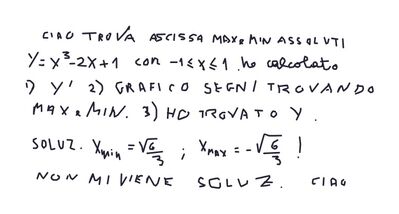 CIAO TROVA ASCISSA MAX e MIN ASSOLUTI
Y = x³-2x+1 con -1≤x≤1 ho calcolato
1) Y' 2) GRAFICO SEGNI TROVANDO
MAX e MIN. 3) HO TROVATO Y.
SOLUZ. Xmin = √6/3 ; XMAX = -√6/3 !
NON MI VIENE SOLUZ. CIAO